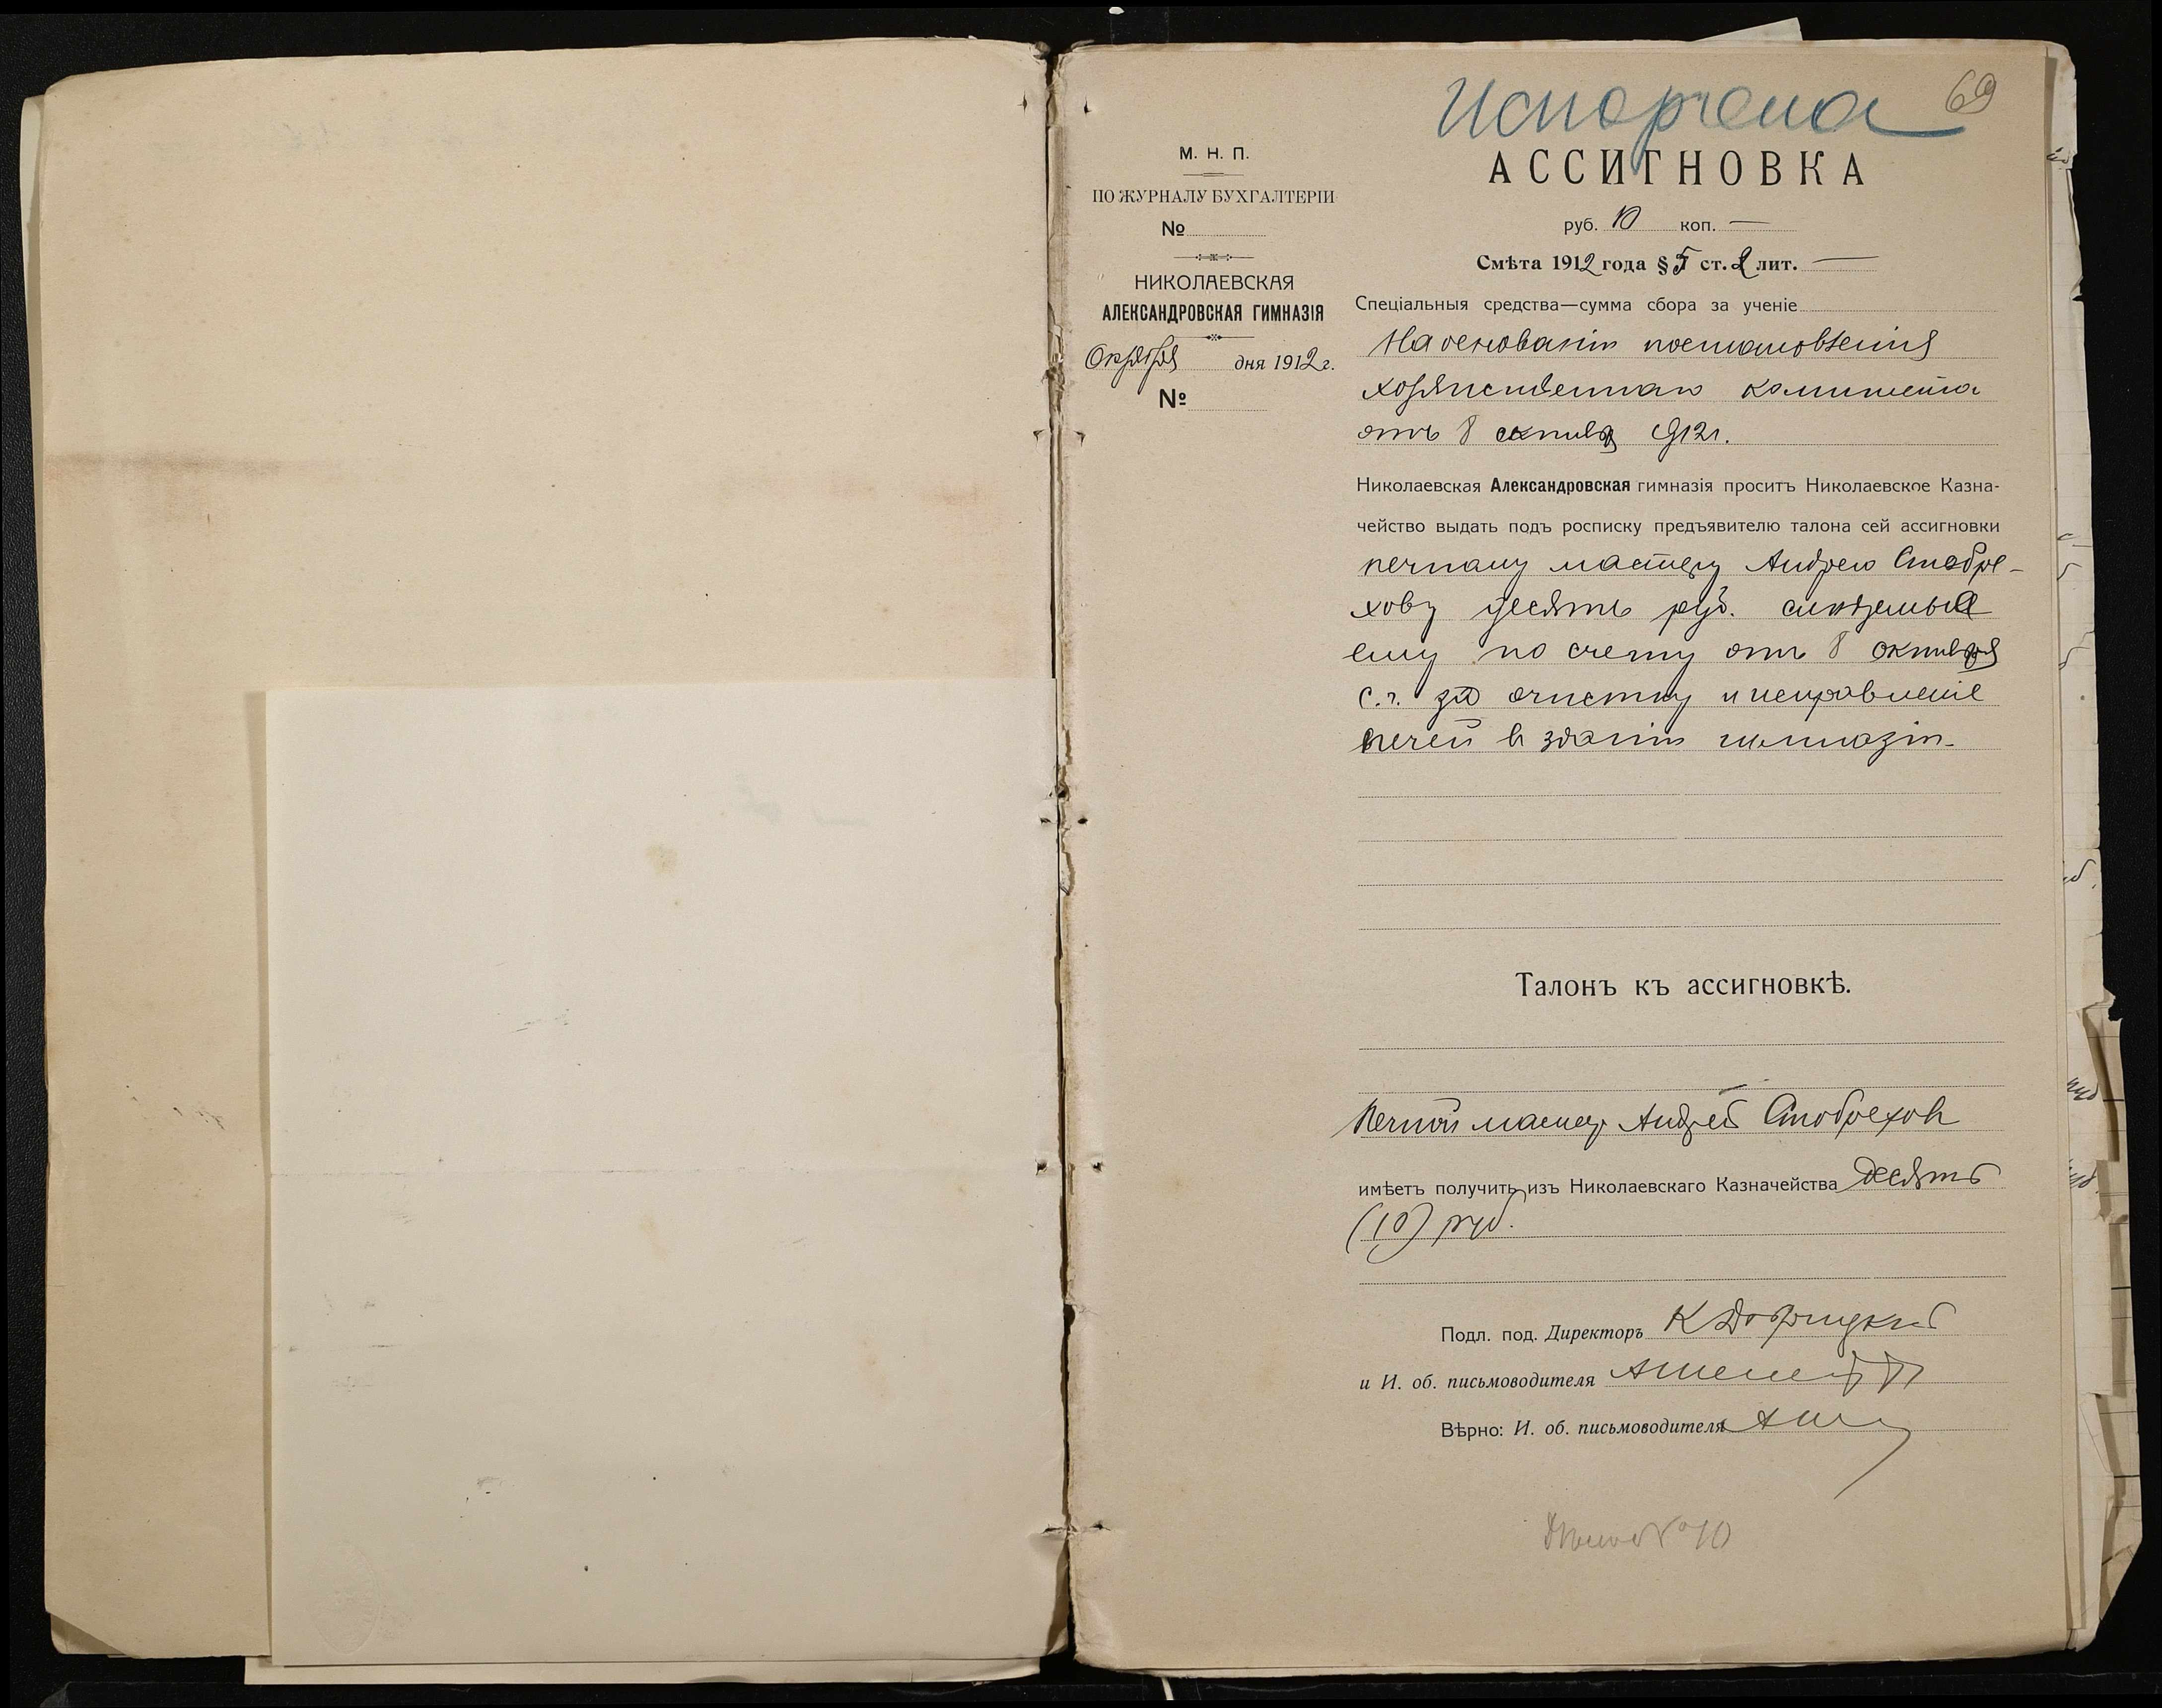 Испорчена 69
М. Н. П.
ПО ЖУРНАЛУ БУХГАЛТЕРІИ
№
НИКОЛАЕВСКАЯ
АЛЕКСАНДРОВСКАЯ ГИМНАЗІЯ
Октября дня 1912 г.
№
АССИГНОВКА
руб. 10 коп. —
Смѣта 1912 года § 5 ст. 2 лит. —
Спеціальныя средства—сумма сбора за ученіе
На основаніи постановленія
хозяйственнаго комитета
отъ 8 октября 1912 г.
Николаевская Александровская гимназія проситъ Николаевское Казна-
чейство выдать подъ росписку предъявителю талона сей ассигновки
печному мастеру Андрею Стобре-
хову десять руб. слѣдуемые
ему по счету отъ 8 октября
с.г. за очистку и исправленіе
печей в зданіи гимназіи.
Талонъ къ ассигновкѣ.
Печной мастер Андрей Стобрехов
имѣетъ получить изъ Николаевскаго Казначейства десять
(10) руб.
Подл. под. Директоръ К
и И. об. письмоводителя
Вѣрно: И. об. письмоводителя
№ 10